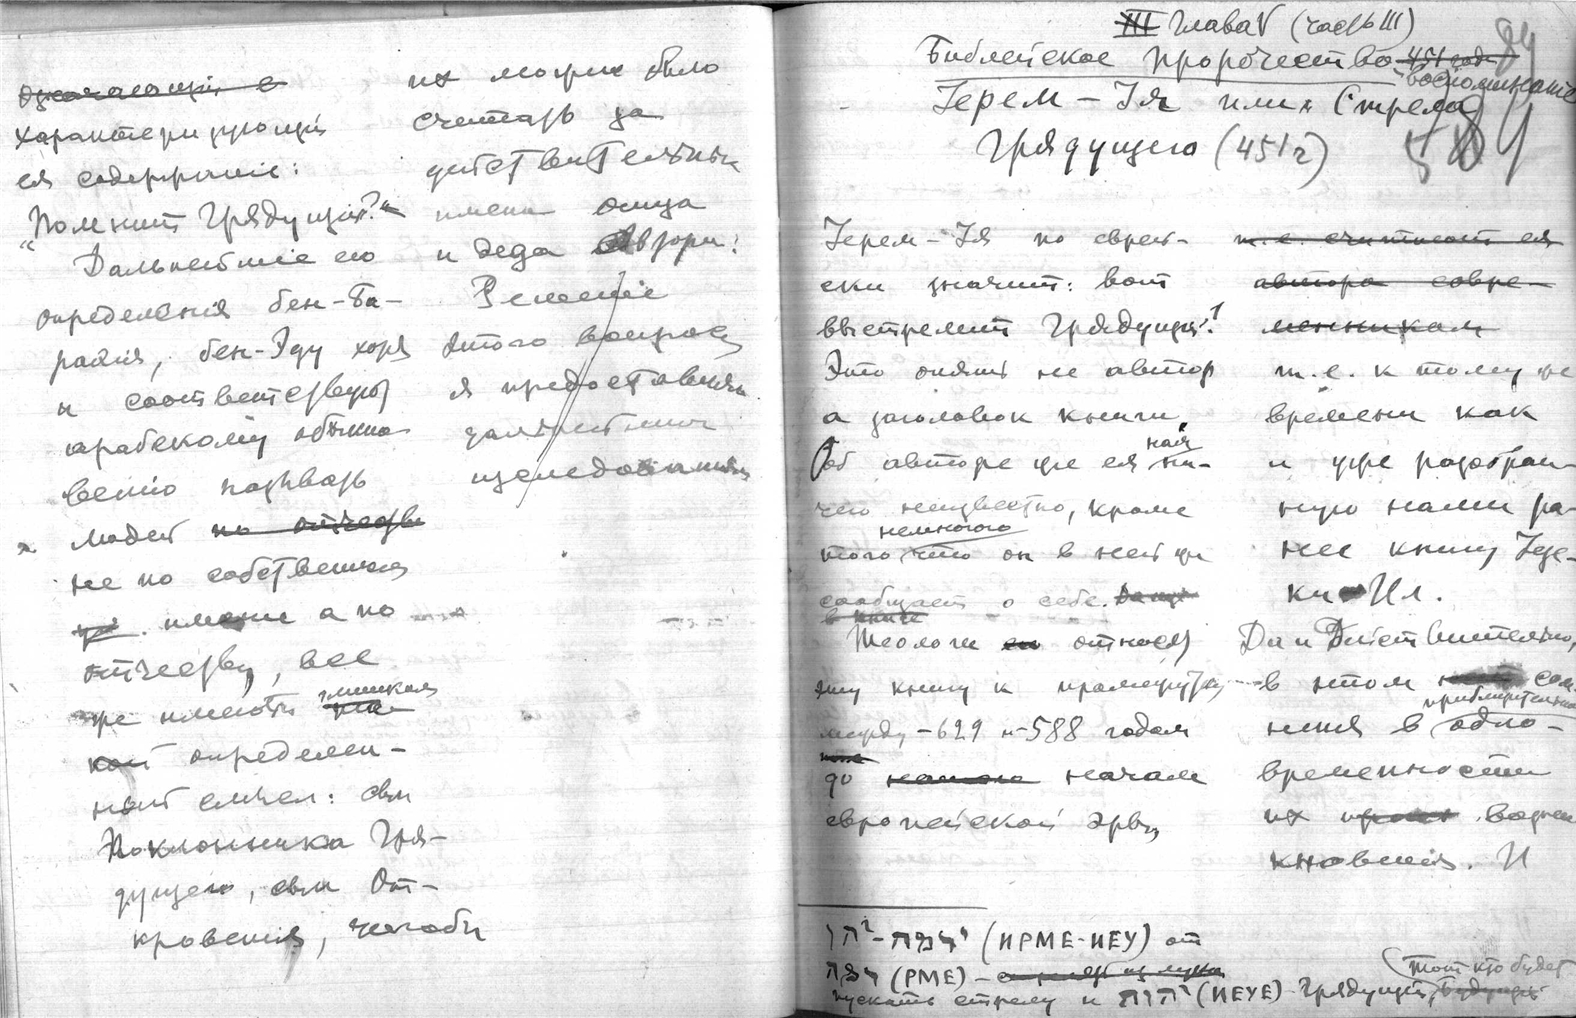 характеризующій
ея содержаніе:
"Помнит Грядущій?"
Дальнейшіе его
определенія бен-Ба-
рахія, бен-Эду хотя
и соответствуют
арабскому обыкно-
венію называть
людей по отчеству
не по собственном
имени а по
отчеству, все
же имеют слишком
определен-
ный смысл: сын
Поклонника Гря-
дущего, сын От-
кровенія, чтобы
их можно было
считать за
действительныя
имена отца
и деда Автора.
Решеніе
этого вопроса
я предоставляю
дальнейшим
изследованіям
III Глава V (часть III)
Библейское пророчество 451 года
воспоминание
Іерем-Ія или Стрела
Грядущего (451 г)
89
589
Іерем-Ія по еврей-
ски значит: вот
выстрелит Грядущій!
Это опять не автор
а заголовок книги.
Об авторе же ея нам
ни-
чего неизвестно, кроме
немногого
того что он в ней же
сообщает о себе.
в книге
Теологи относят
эту книгу к промежутку
между -629 и -588 годом
до начала
европейской эры,
т.е. считают ея
автора совре-
менником
т.е. к тому же
времени как
и уже разобран-
ную нами ра-
нее книгу Іезе-
ки Ил.
Да и Действительно,
в этом сом-
приблизительно
ненія в одно-
временности
их возни
кновенія. И
ירמה-יהו (ИРМЕ-ИЕУ) от
ירמה (РМЕ) -
пускать стрелу и יהוה (ИЕУЕ) - Грядущій,
тот кто будет